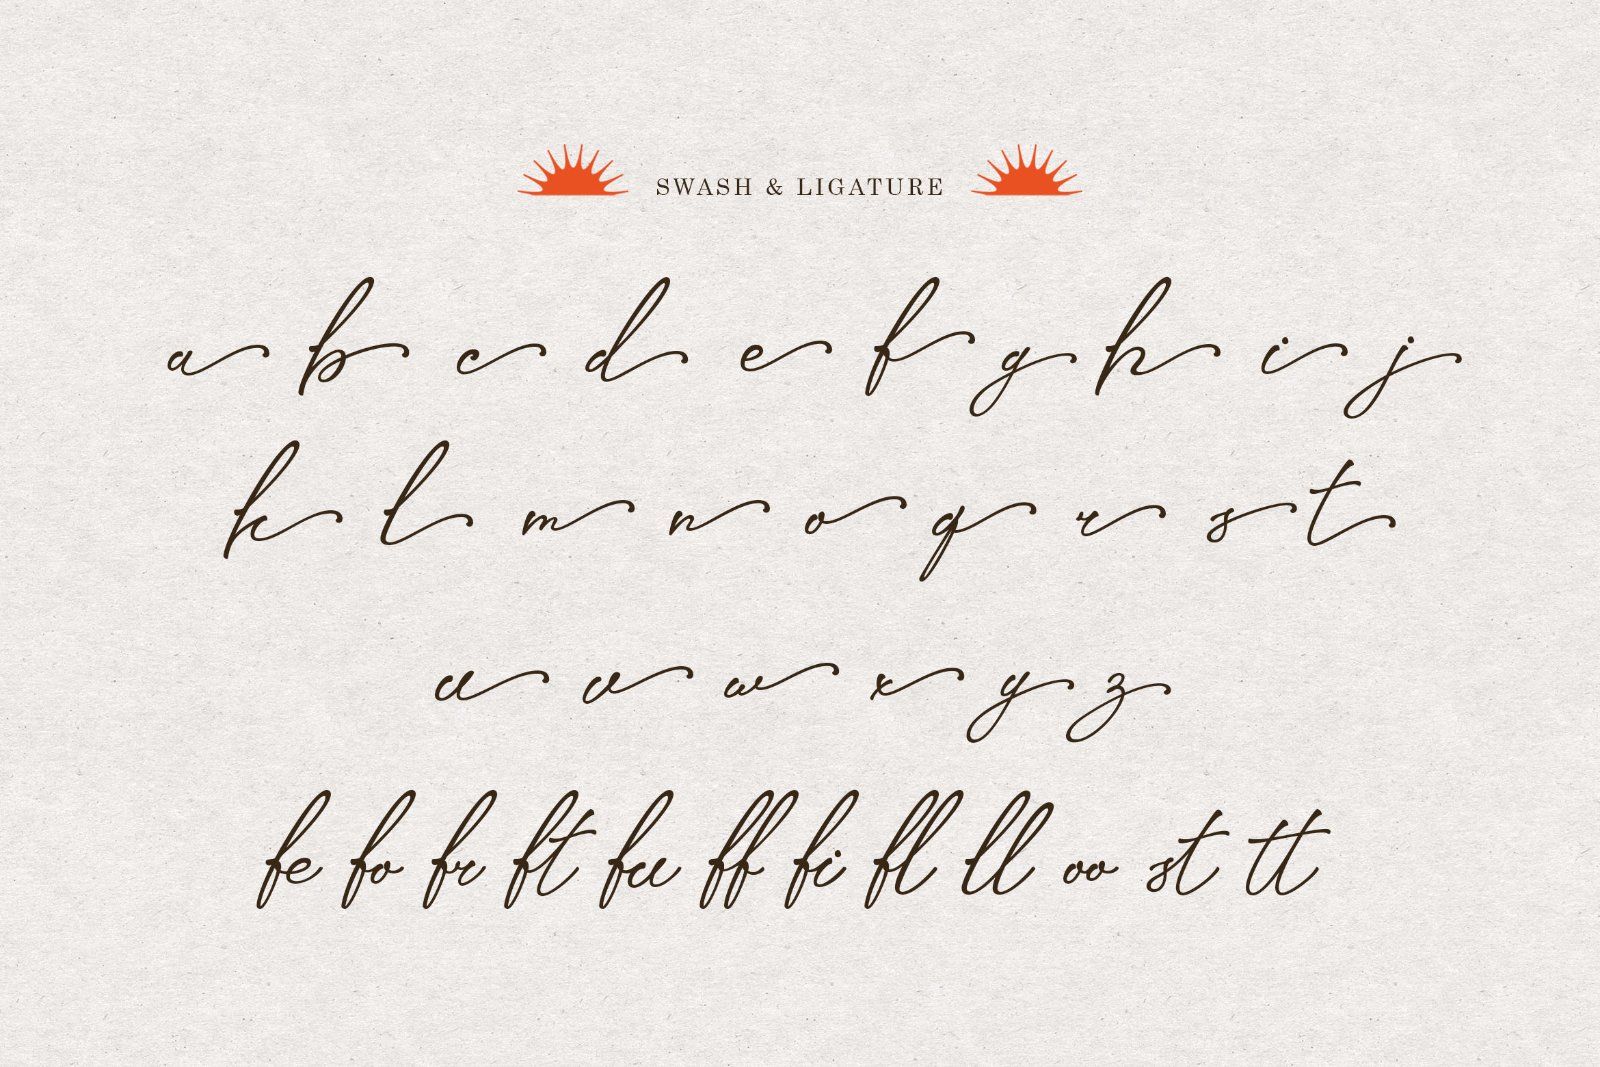 SWASH & LIGATURE
a b c d e f g h i j
k l m n o q r s t
u v w x y z
fe fo fr ft fu ff fi fl ll oo st tt